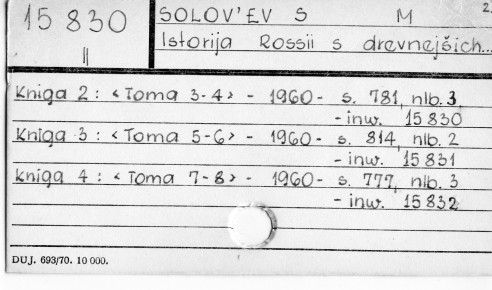 15 830 SOLOV'EV S M 2
||
Istorija Rossii s drevnejšich...
Kniga 2 : <Toma 3-4> - 1960 - s. 781, nlb. 3
- inw. 15 830
Kniga 3 : <Toma 5-6> - 1960 - s. 814, nlb. 2
- inw. 15 831
Kniga 4 : <Toma 7-8> - 1960 - s. 777, nlb. 3
- inw. 15 832
DUJ. 693/70. 10 000.